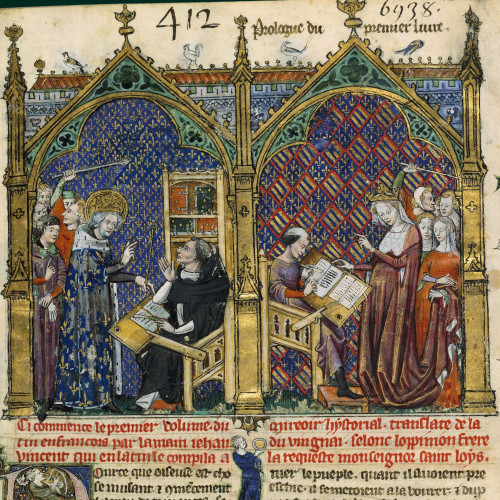 412
6938.
Prologue du premier livre.
Ci commence le premier volume du mireoir hystorial. translate de la
tin en francois par la main jehan du vingnai. selonc loppinion frere
vincent qui en latin le compila a la requeste monseignor saint loys.
Ource que oiseuse est cho
se nuisant
le pueple. quant il avoient pre
il se metoient a